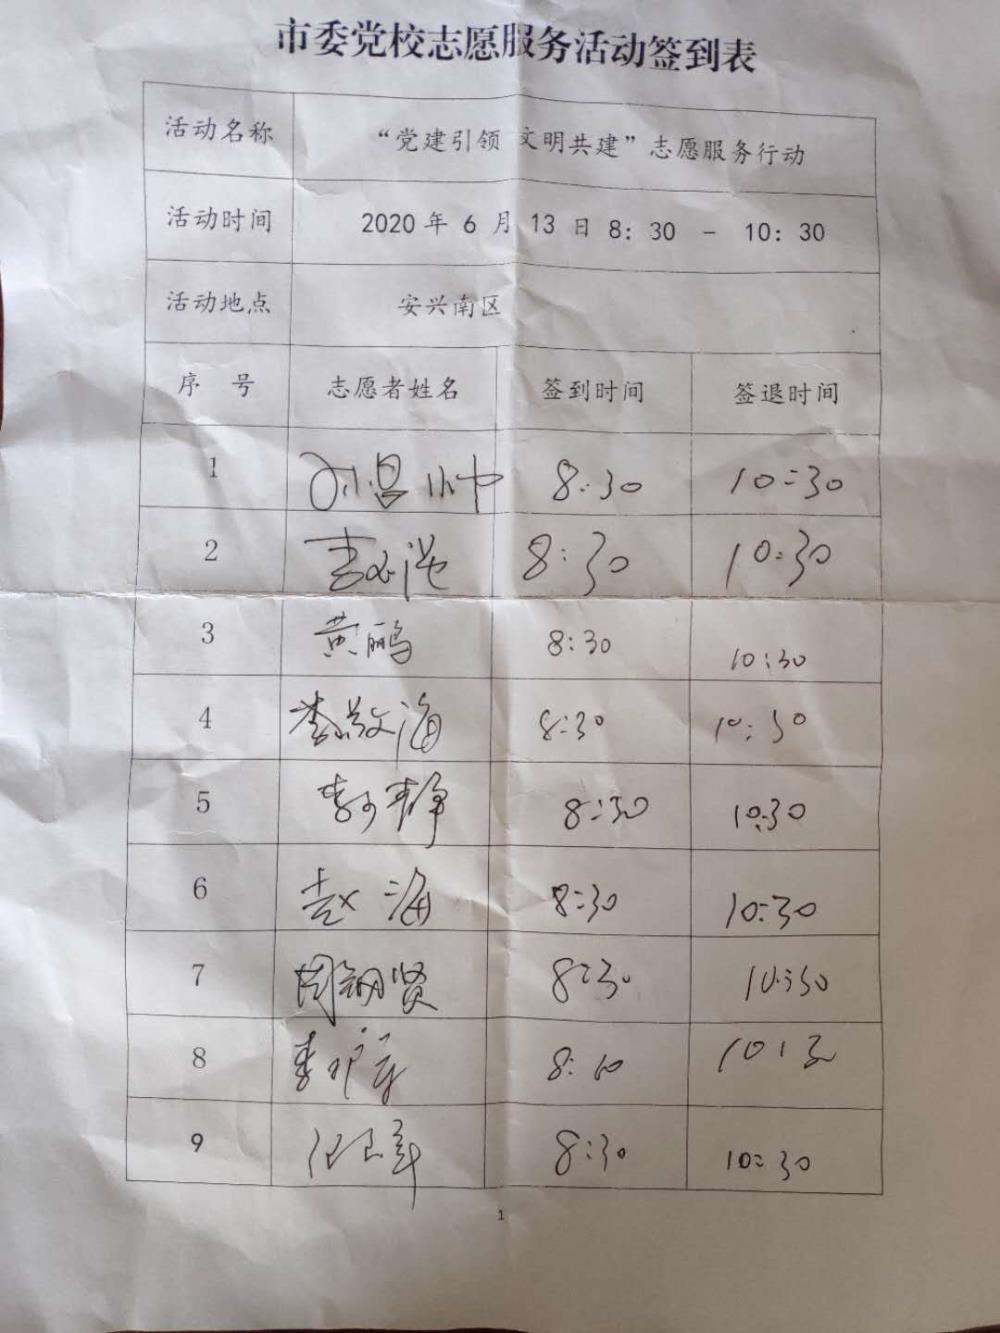 市委党校志愿服务活动签到表
活动名称 “党建引领 文明共建”志愿服务行动
活动时间 2020 年 6 月 13 日 8: 30 - 10: 30
活动地点 安兴南区
序 号 志愿者姓名 签到时间 签退时间
1 刘昌帅 8:30 10:30
2 8:30 10:30
3 黄鹂 8:30 10:30
4 李敬海 8:30 10:30
5 静 8:30 10:30
6 赵海 8:30 10:30
7 周钢贤 8:30 10:30
8 李 8: 10:3
9 8:30 10:30
1